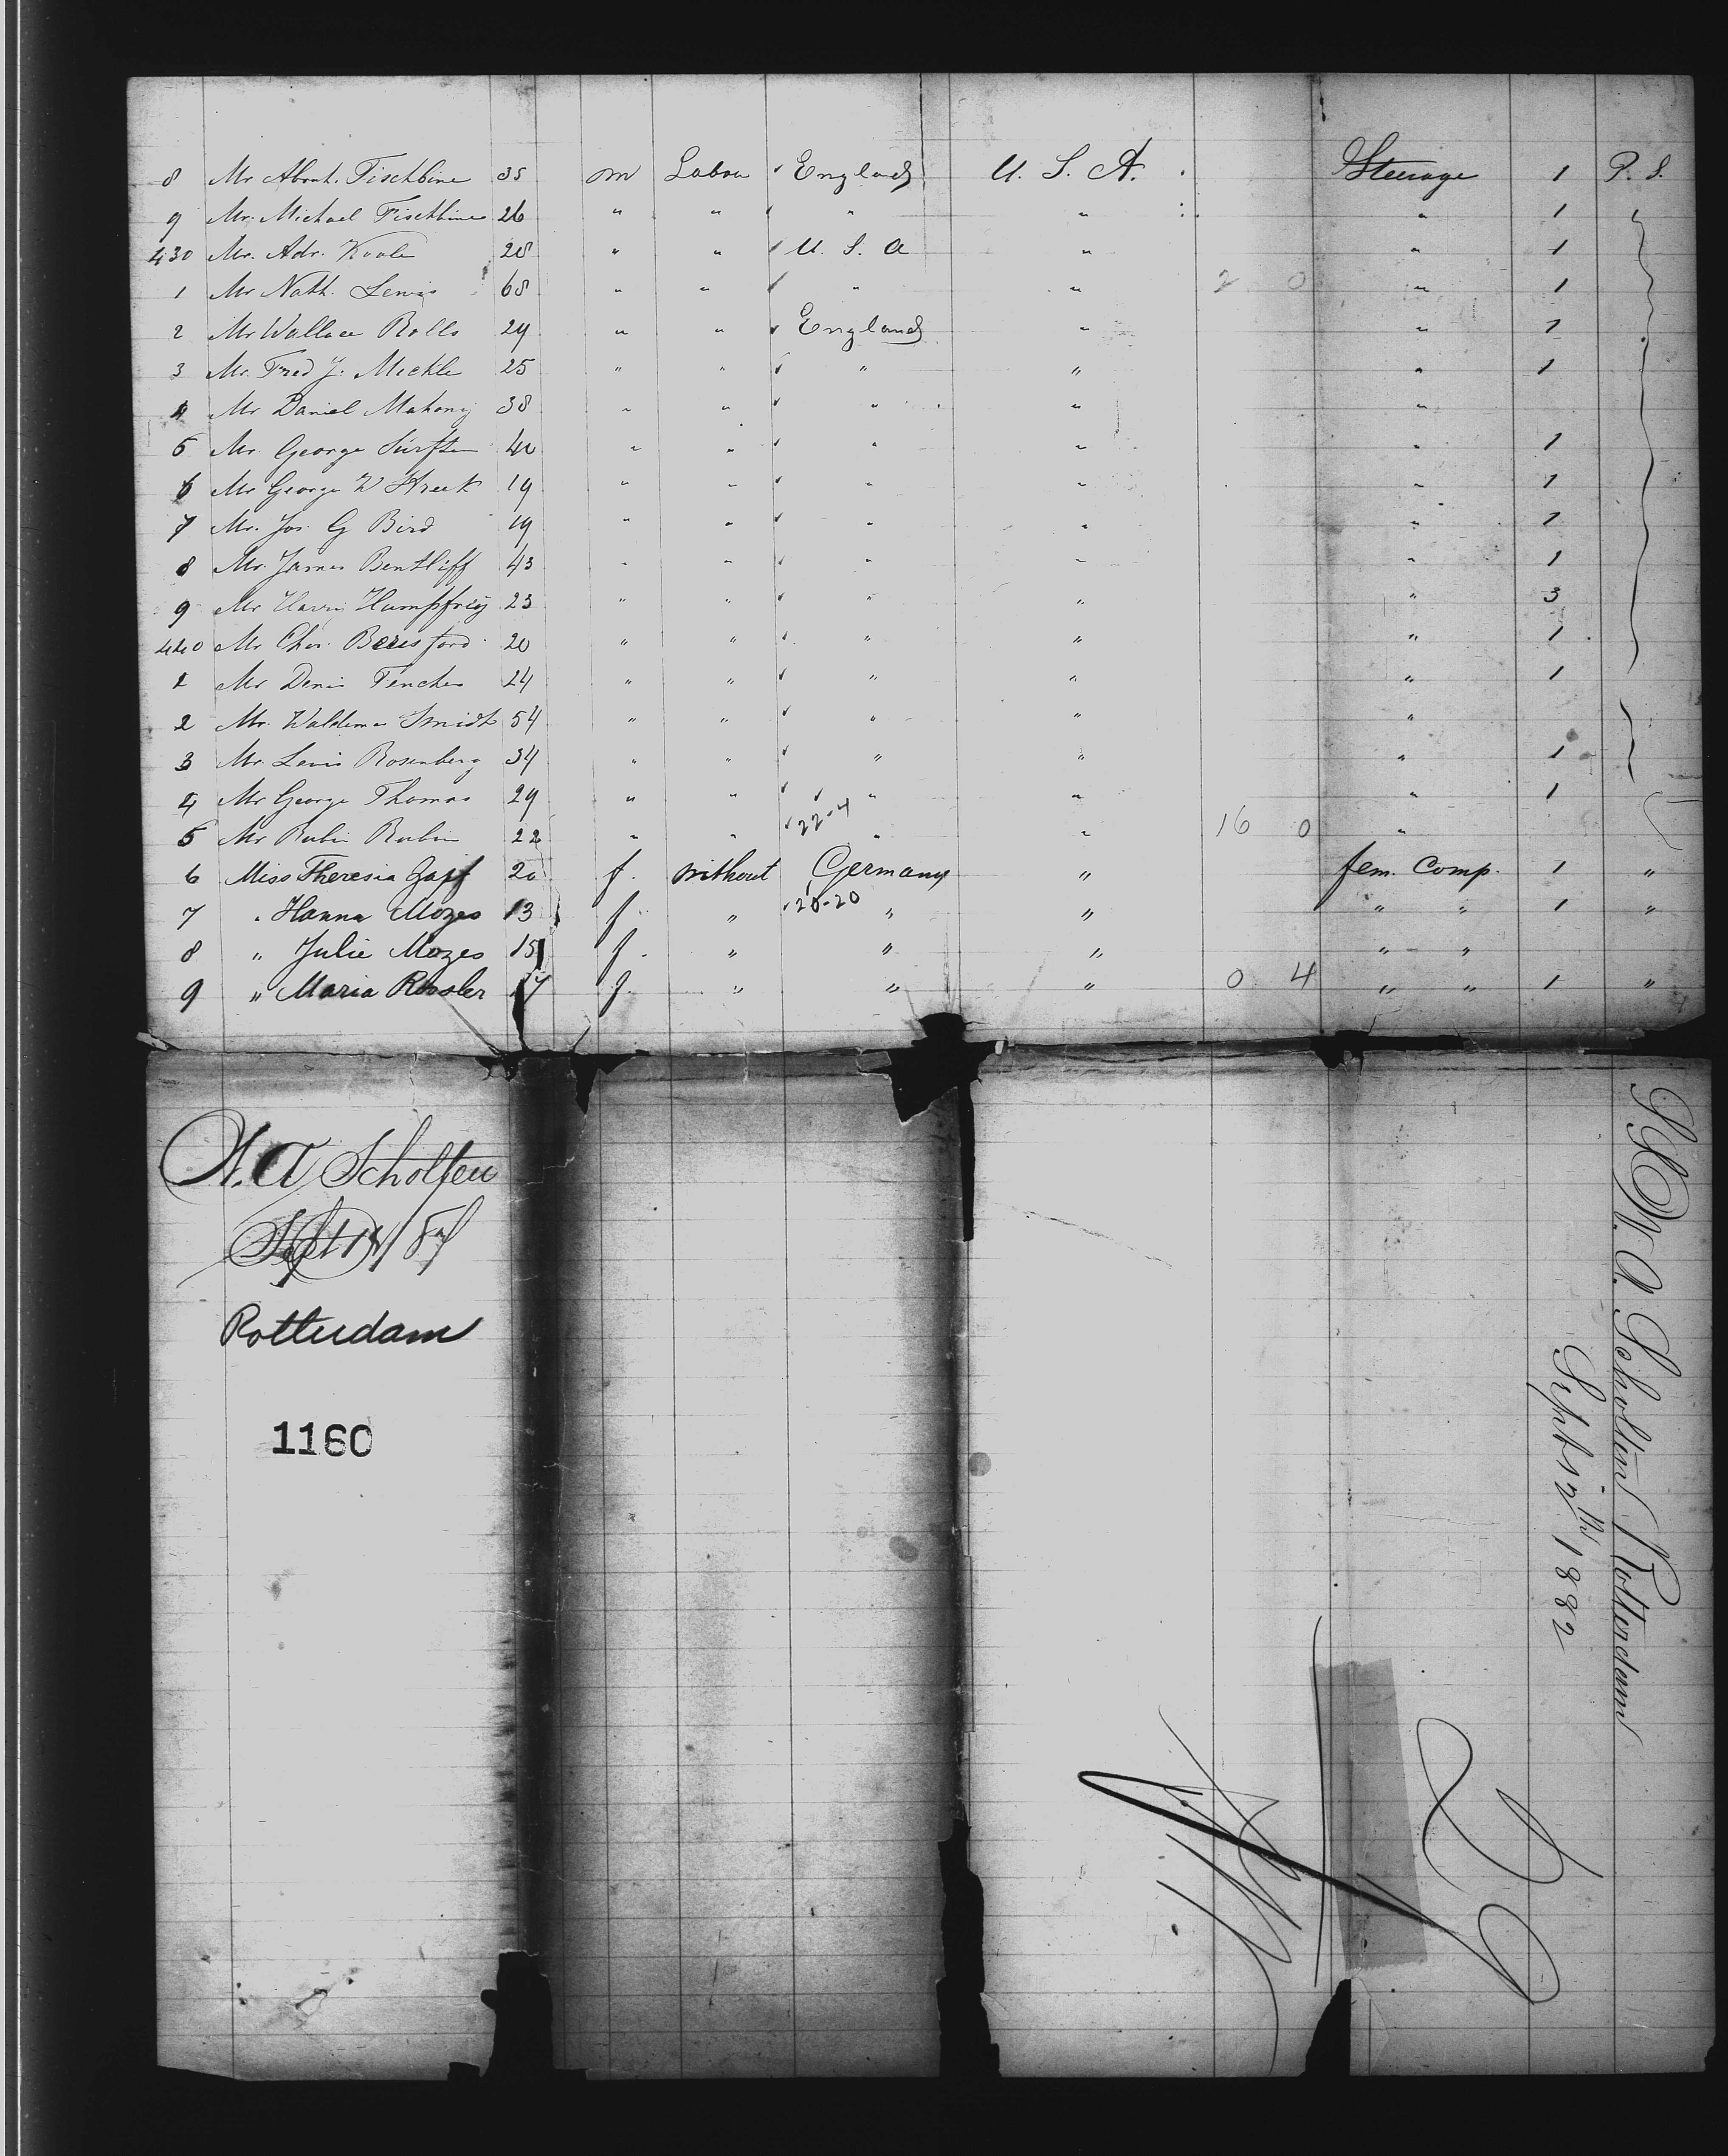 8 Mr Abrah. Fischbine 35 m Labour England U. S. A. Steerage 1 P. S.
9 Mr. Michael Fischbine 26 " " " " " 1
430 Mr. Adr. Koole 28 " " U. S. A " " 1
1 Mr Nath. Lewis 68 " " " " 2 0 " 1
2 Mr Wallace Rolls 29 " " England " " 1
3 Mr. Fred J. Mickle 25 " " " " " 1
4 Mr Daniel Mahony 38 " " " " "
5 Mr. George 40 " " " " " 1
6 Mr George W 19 " " " " " 1
7 Mr. Jos. G Bird 19 " " " " " 1
8 Mr. James Bentliff 43 " " " " " 1
9 Mr Harry Humpfrey 23 " " " " " 3
440 Mr Chas. Beresford 20 " " " " " 1
1 Mr Denis 24 " " " " " 1
2 Mr. Waldemar Smidt 54 " " " " "
3 Mr. Lewis Rosenberg 34 " " " " " 1
4 Mr George Thomas 29 " " " " " 1
5 Mr Rubin Rubin 22 " " 22-4 " " 16 0 "
6 Miss Theresia Zapf 20 f. without Germany " fem. Comp. 1 "
7 " Hanna Mozes 13 f " 20-20 " " " " 1 "
8 " Julie Mozes 15 f. " " " " "
9 " Maria Rossler 17 f. " " " 0 4 " " 1 "
W. A Scholten
Sept 14/87
Rotterdam
1160
SS W. A. Scholten Rotterdam
Septr 12th 1882